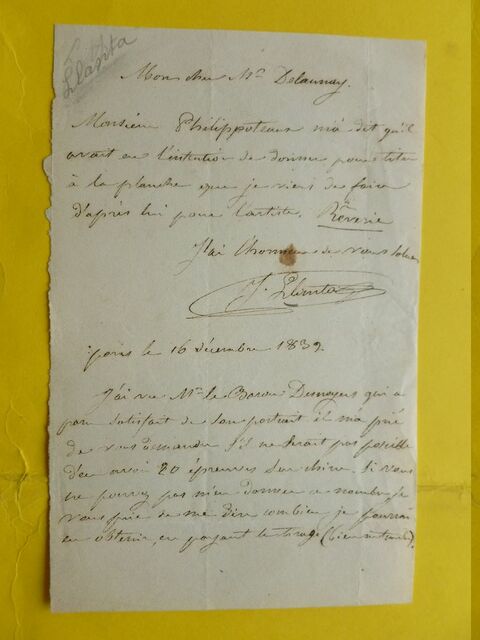 Llanta
Mon cher Mr Delaunay.
Monsieur Philippoteaux m'a dit qu'il
avait eu l'intention de donner pour titre
à la planche que je viens de faire
d'après lui pour l'artiste. Rêverie
J'ai l'honneur de vous saluer
J. Llanta
Paris le 16 décembre 1839.
J'ai vu Mr le Baron Desnoyers qui a
paru satisfait de son portrait il m'a prié
de vous demander s'il ne serait pas possible
d'en avoir 20 épreuves sur chine. Si vous
ne pouvez pas m'en donner ce nombre, je
vous prie de me dire combien je pourrai
en obtenir, en payant le tirage (bien entendu).